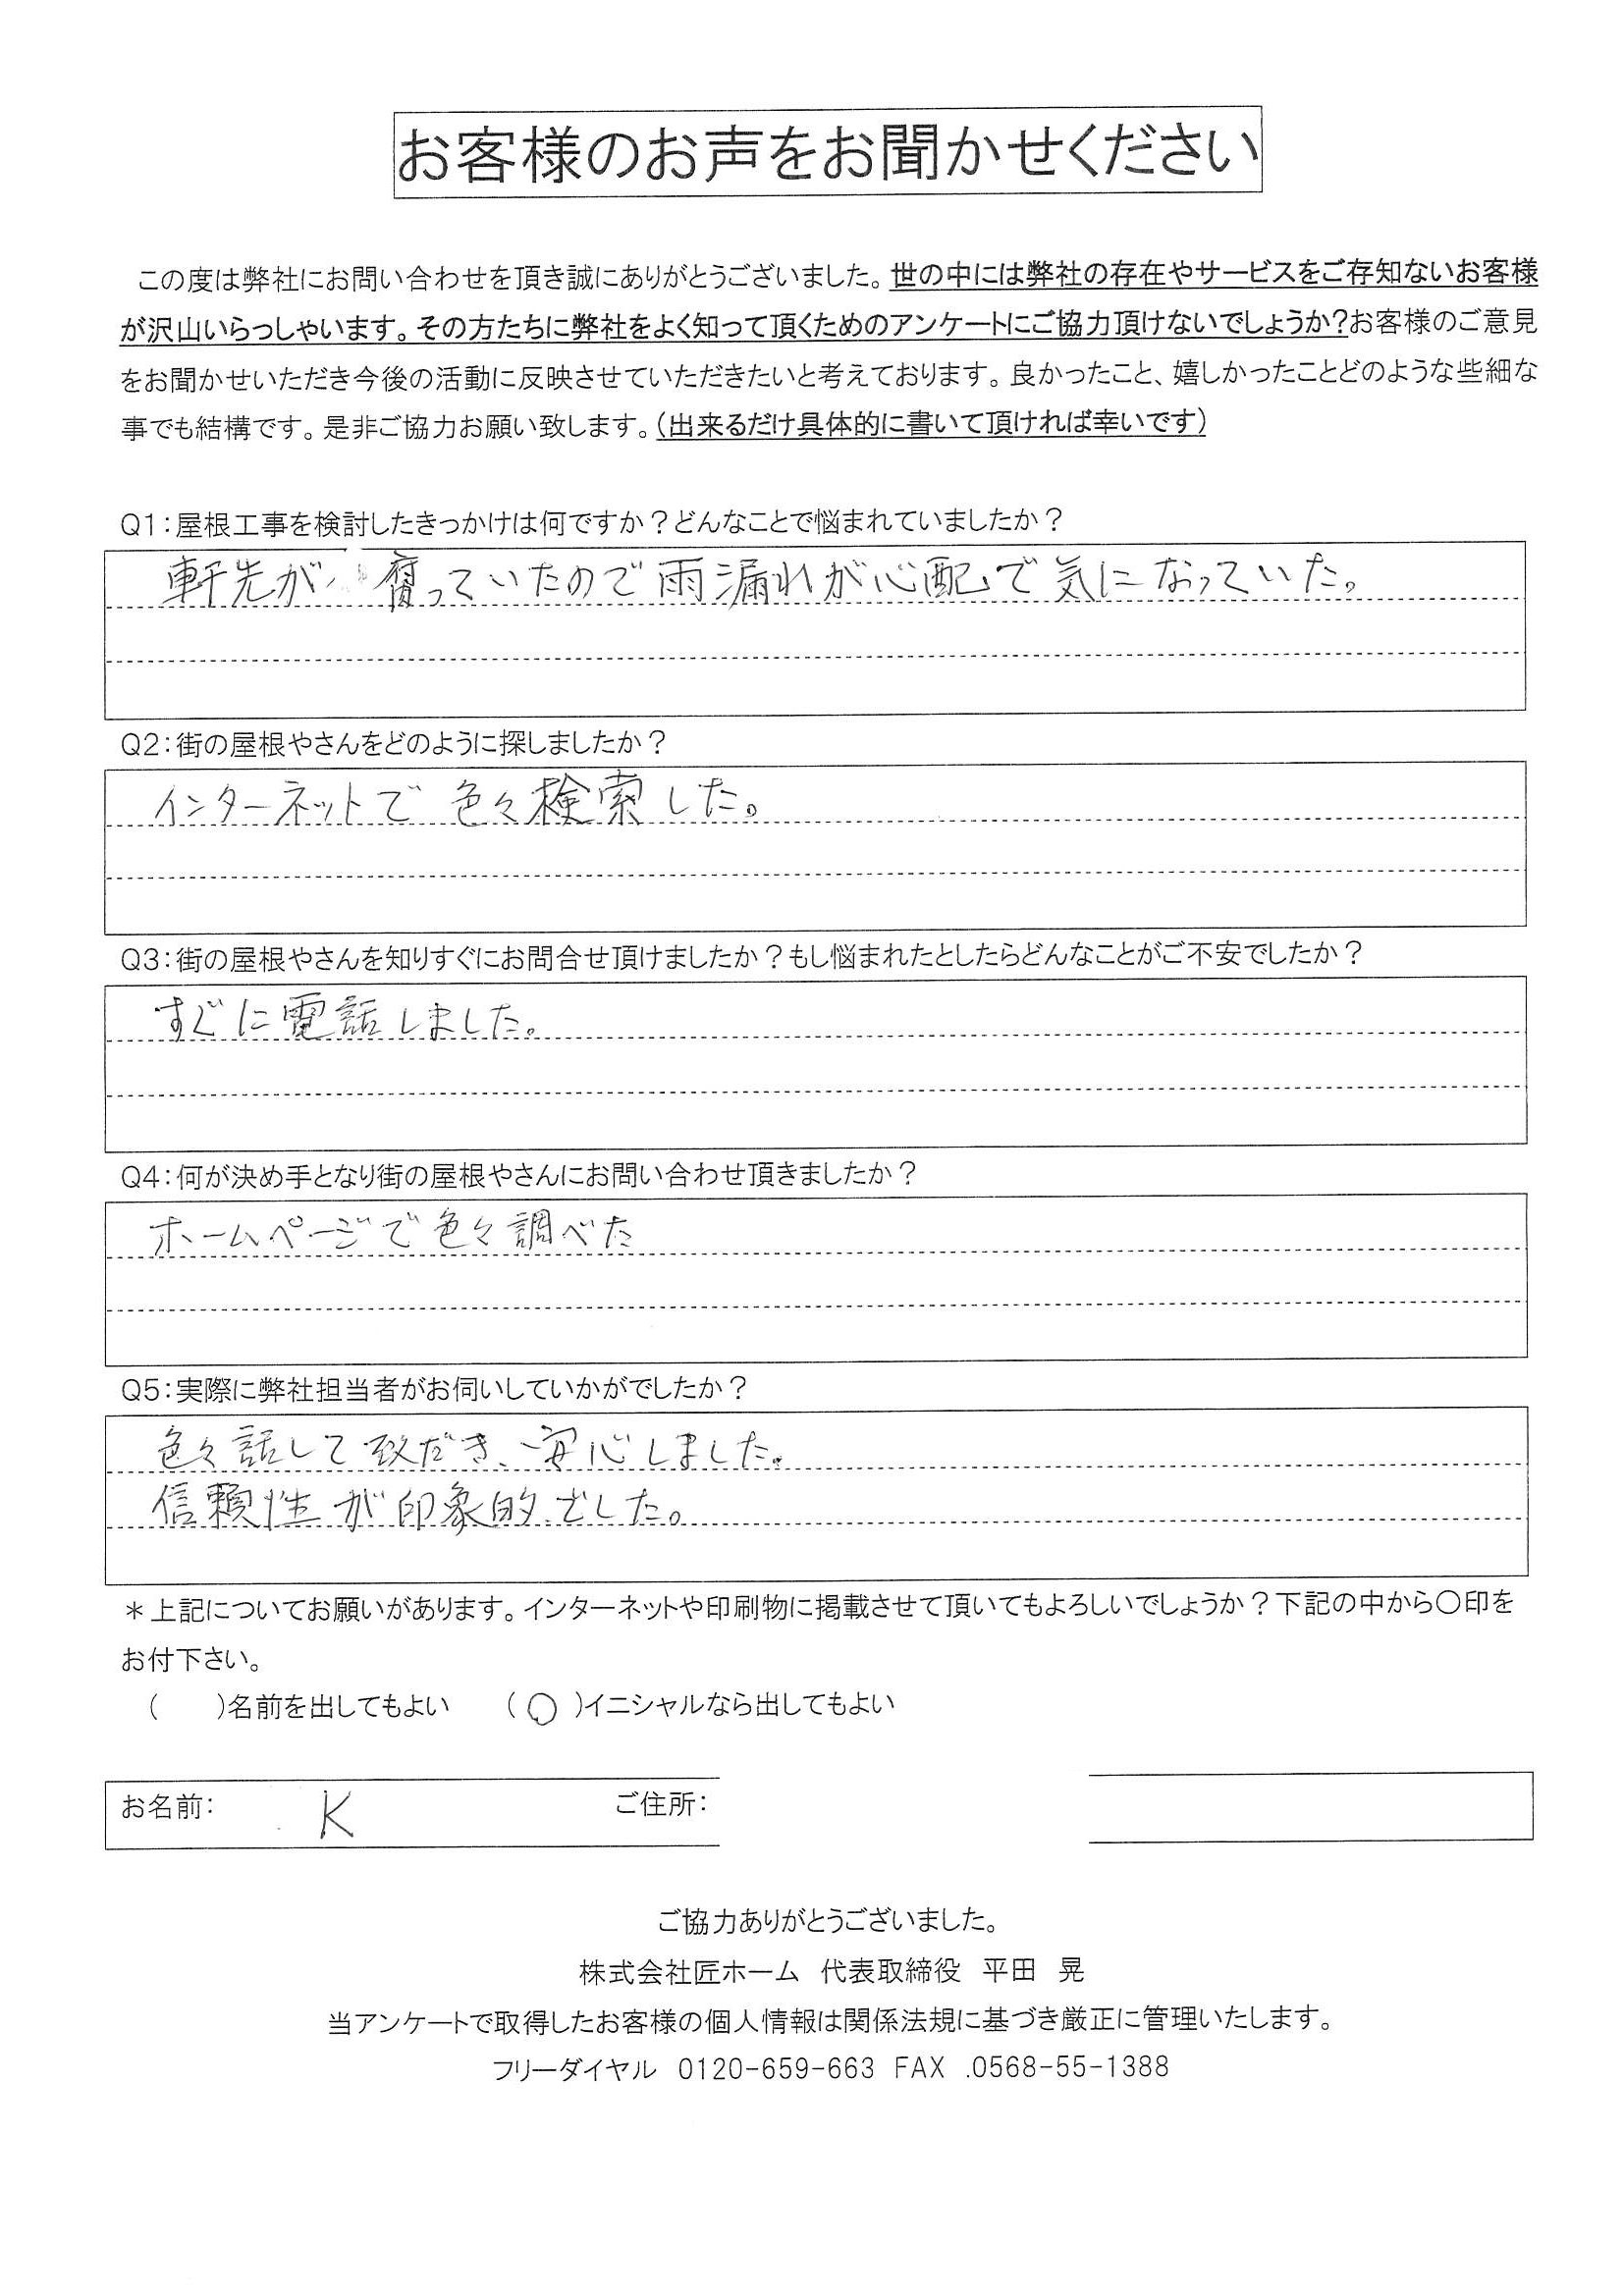 お客様のお声をお聞かせください
この度は弊社にお問い合わせを頂き誠にありがとうございました。世の中には弊社の存在やサービスをご存知ないお客様
が沢山いらっしゃいます。その方たちに弊社をよく知って頂くためのアンケートにご協力頂けないでしょうか?お客様のご意見
をお聞かせいただき今後の活動に反映させていただきたいと考えております。良かったこと、嬉しかったことどのような些細な
事でも結構です。是非ご協力お願い致します。(出来るだけ具体的に書いて頂ければ幸いです)
Q1:屋根工事を検討したきっかけは何ですか?どんなことで悩まれていましたか?
軒先が腐っていたので雨漏れが心配で気になっていた。
Q2:街の屋根やさんをどのように探しましたか?
インターネットで色々検索した。
Q3:街の屋根やさんを知りすぐにお問合せ頂けましたか?もし悩まれたとしたらどんなことがご不安でしたか?
すぐに電話しました。
Q4:何が決め手となり街の屋根やさんにお問い合わせ頂きましたか?
ホームページで色々調べた
Q5:実際に弊社担当者がお伺いしていかがでしたか?
色々話して致だき、安心しました。
信頼性が印象的でした。
*上記についてお願いがあります。インターネットや印刷物に掲載させて頂いてもよろしいでしょうか?下記の中から〇印を
お付下さい。
( )名前を出してもよい (〇)イニシャルなら出してもよい
お名前: K ご住所:
ご協力ありがとうございました。
株式会社匠ホーム 代表取締役 平田 晃
当アンケートで取得したお客様の個人情報は関係法規に基づき厳正に管理いたします。
フリーダイヤル 0120-659-663 FAX .0568-55-1388